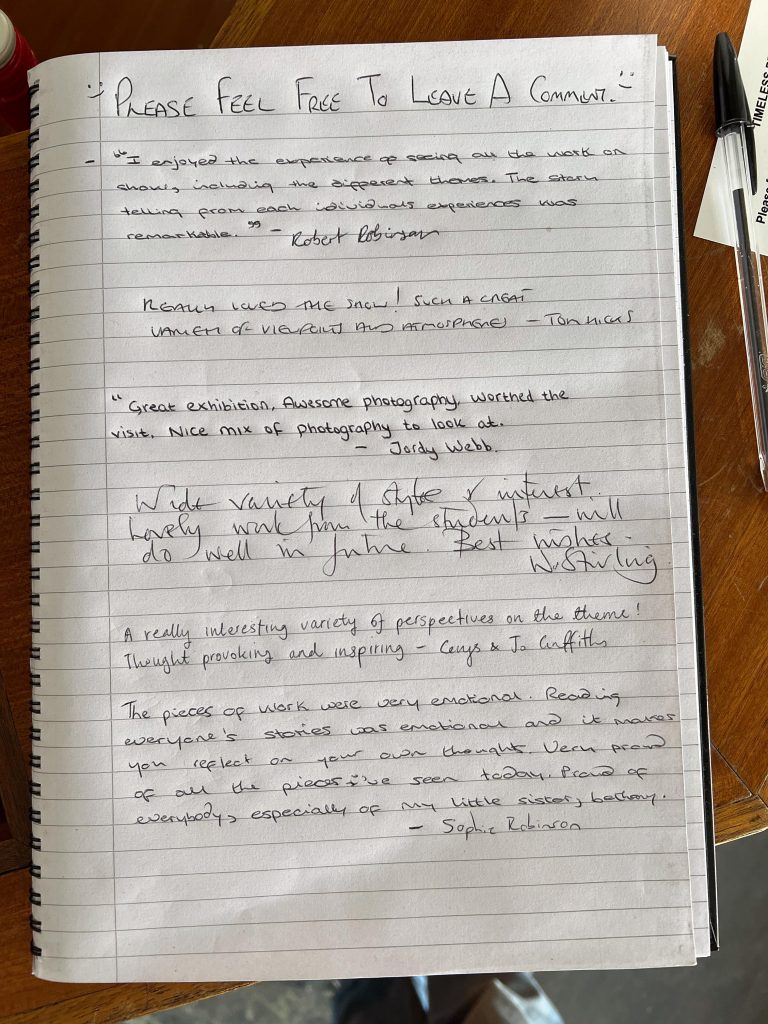 PLEASE FEEL FREE TO LEAVE A COMMENT.
- "I enjoyed the experience of seeing all the work on
show, including the different themes. The story
telling from each idividuals experiences was
remarkable." - Robert Robinson
REALLY LOVED THE SHOW! SUCH A GREAT
VARIETY OF VIEWPOINTS AND ATMOSPHERES - TOM HICKS
"Great exhibition, Awesome photography, worthed the
visit. Nice mix of photography to look at.
- Jordy Webb.
Wide variety of styles & interest.
Lovely work from the students - will
do well in future. Best wishes.
W. Stirling
A really interesting variety of perspectives on the theme!
Thought provoking and inspiring - Cerys & Jo Griffiths
The pieces of work were very emotional. Reading
everyone's stories was emotional and it makes
you reflect on your own thoughts. Very proud
of all the pieces I've seen today. Proud of
everybody, especially of my little sister, bethany.
- Sophie Robinson
TIMELESS
Please